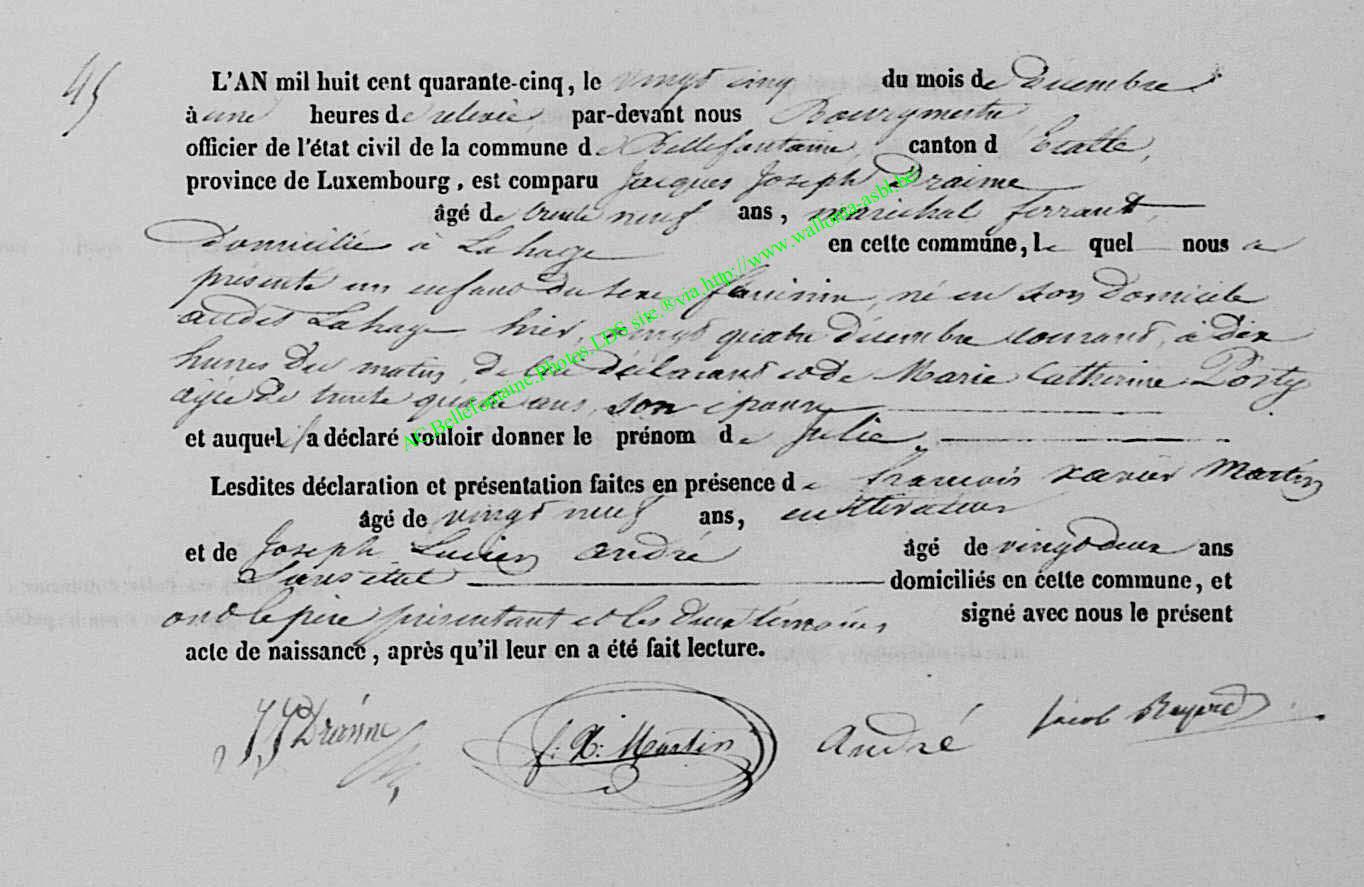 45
L'AN mil huit cent quarante-cinq, le vingt cinq du mois de Décembre
à une heures de relevée, par-devant nous Bourgmestre
officier de l'état civil de la commune de Bellefontaine, canton d' Etalle,
province de Luxembourg, est comparu Jacques Joseph Draime
âgé de trente neuf ans, maréchal ferrant,
domicilié à Lahage en cette commune, le quel nous a
présenté un enfant du sexe féminin, né en son domicile
audit Lahage hier, vingt quatre Décembre courant, à dix
heures du matin, de lui déclarant et de Marie Catherine
agée de trente quatre ans, son épouse
et auquel il a déclaré vouloir donner le prénom de Julie,
Lesdites déclaration et présentation faites en présence de françois xavier Martin
âgé de vingt neuf ans, cultivateur
et de Joseph Lucien andré âgé de vingt deux ans
Sans état domiciliés en cette commune, et
ont le père présentant et les deux témoins signé avec nous le présent
acte de naissance, après qu'il leur en a été fait lecture.
JJ Drainne f: X: Martin André Jacob
AC Bellefontaine Photos LDS site ®via http://www.wallonia-asbl.be/